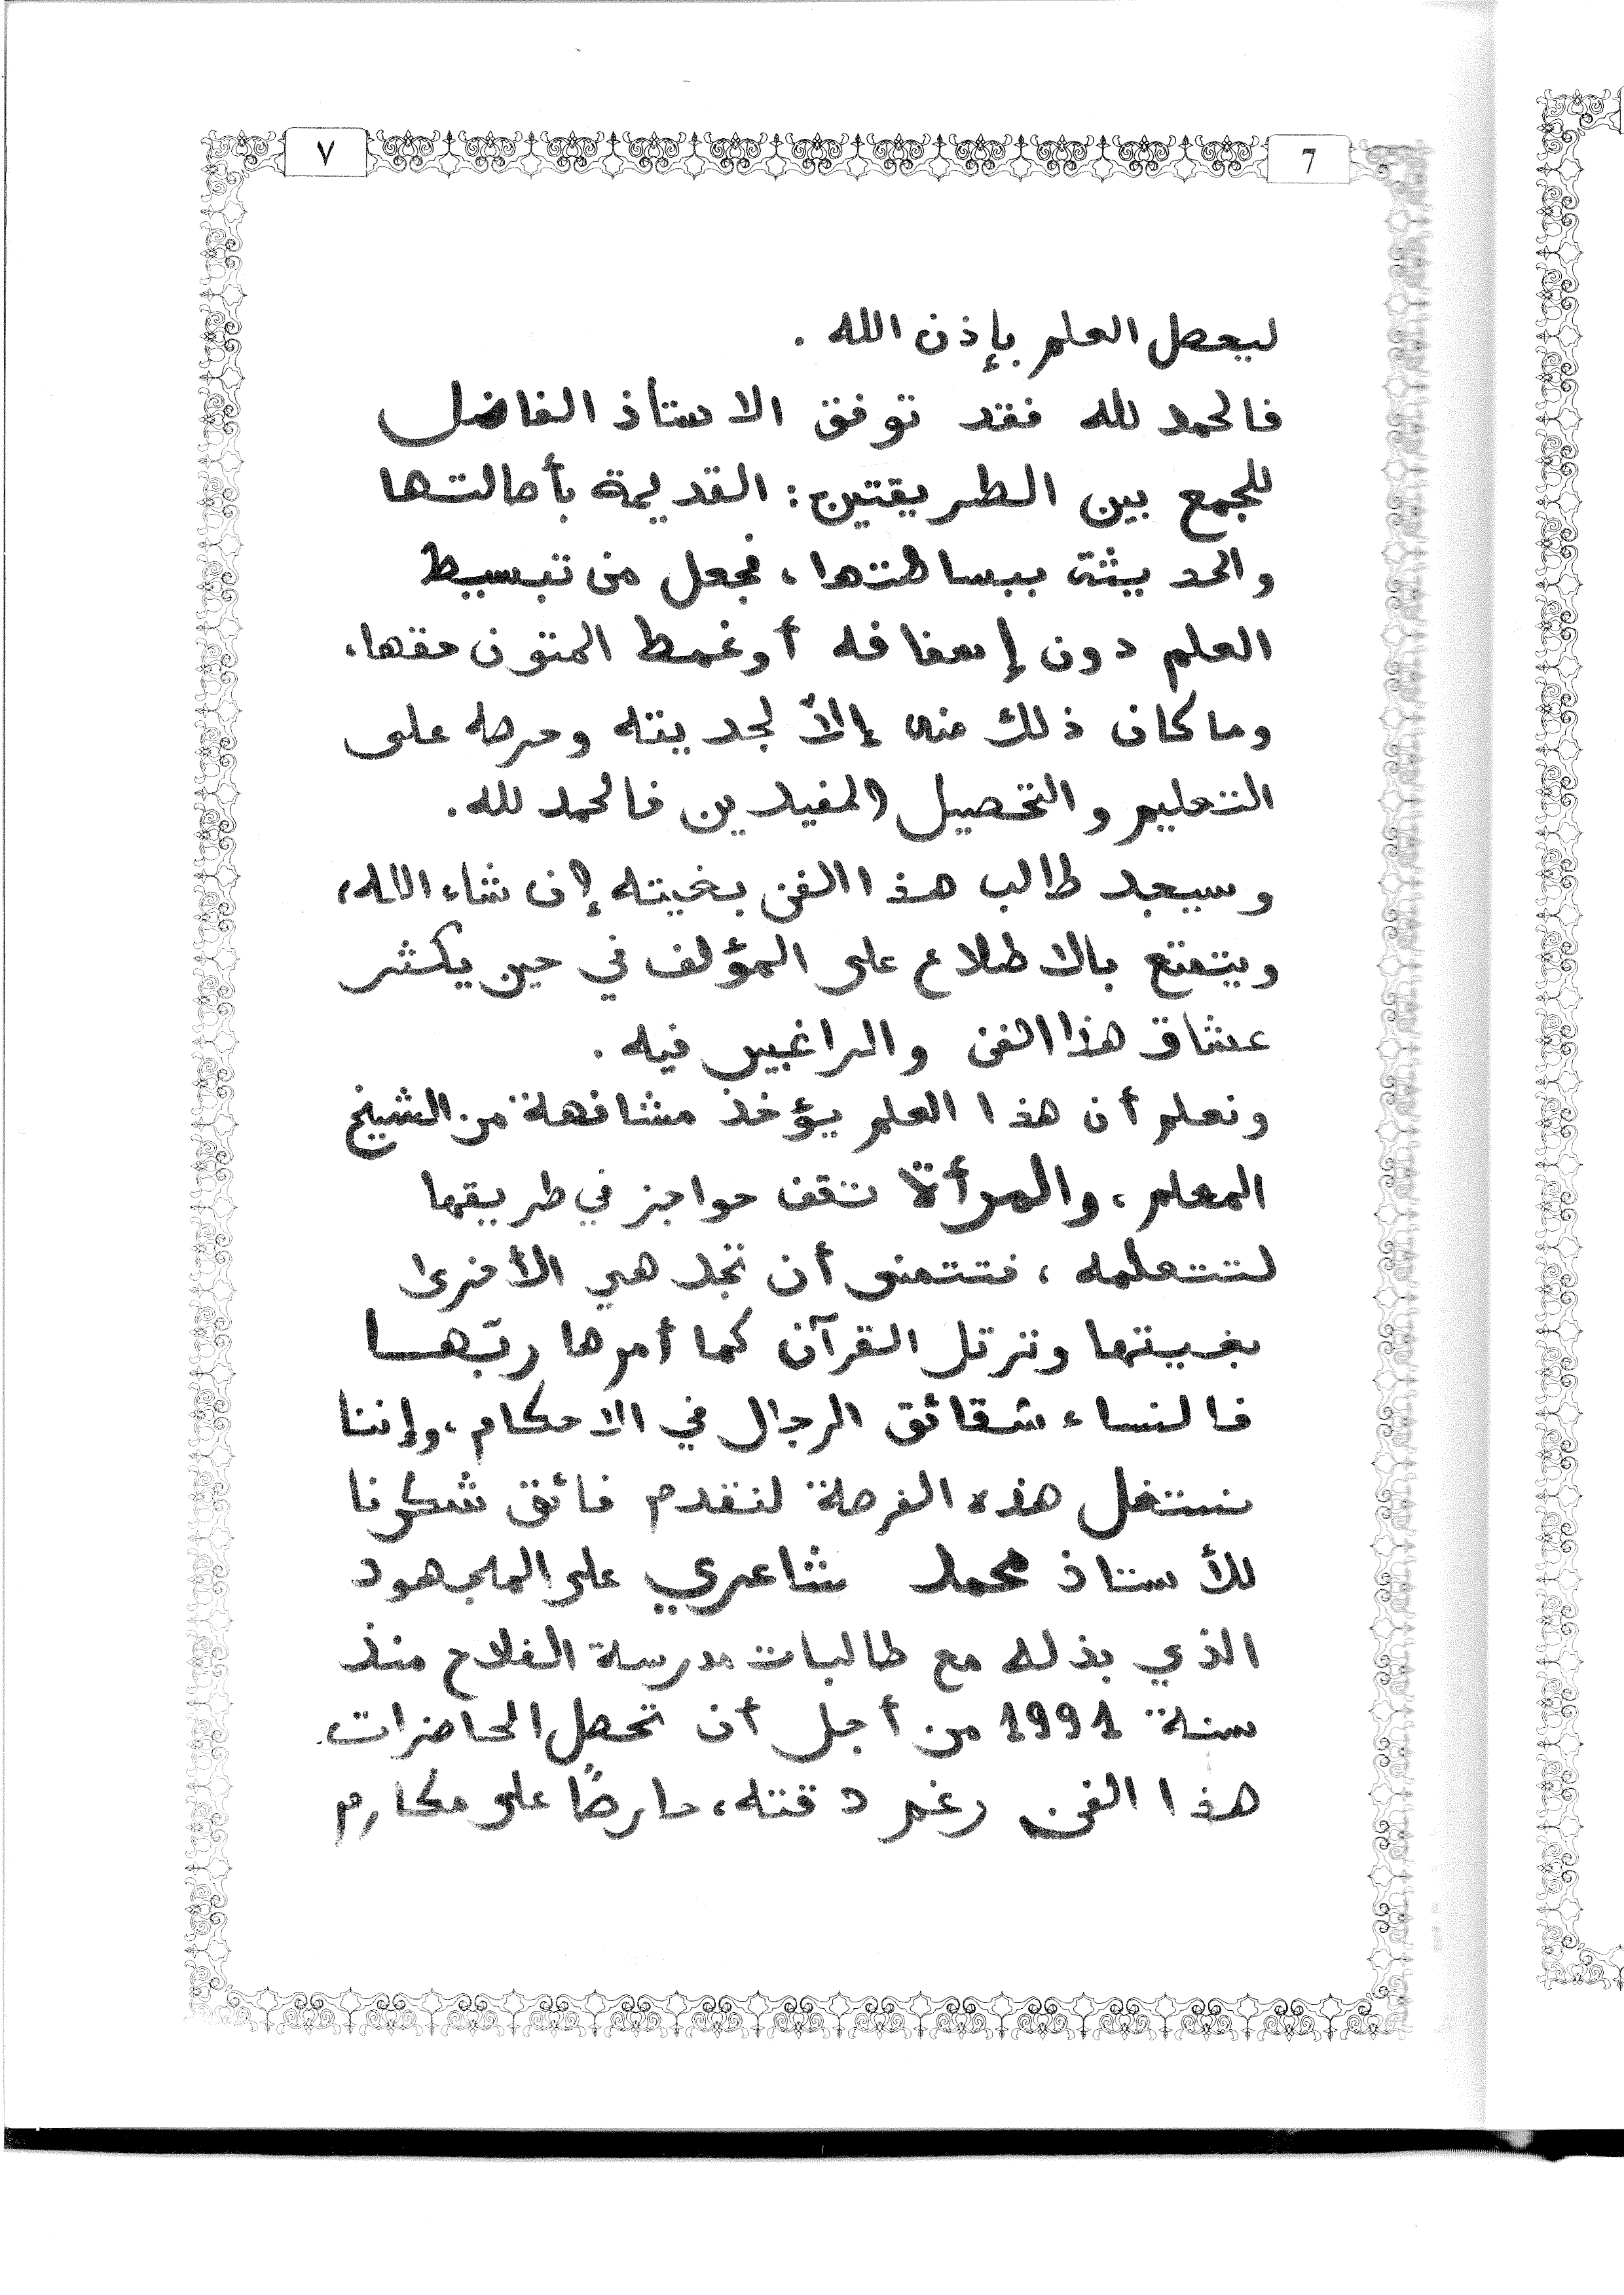 ٧
7
ليحصل العلم بإذن الله .
فالحمد لله فقد توفق الاستاذ الفاضل
للجمع بين الطريقتين : القديمة بأصالتها
والحديثة ببساطتها ، فجعل من تبسيط
العلم دون إسفافه أو غمط المتون حقها .
وما كان ذلك منه إلاّ لجديته وحرصه على
التعليم والتحصيل المفيدين فالحمد لله .
وسيجد طالب هذا الفن بغيته إن شاء الله ،
ويتمتع بالاطلاع على المؤلف في حين يكثر
عشاق هذا الفن والراغبين فيه .
ونعلم أن هذا العلم يؤخذ مشافهة من الشيخ
المعلم ، والمرأة تقف حواجز في طريقها
لتتعلمه ، فتتمنى أن تجد هي الأخرى
بغيتها وترتل القرآن كما أمرها ربّها
فالنساء شقائق الرجال في الاحكام ، وإننا
نستغل هذه الفرصة لنقدم فائق شكرنا
للأستاذ محمد شاعري على المجهود
الذي بذله مع طالبات مدرسة الفلاح منذ
سنة 1991 من أجل أن تحصل الحاضرات
هذا الفن رغم دقته ، حارصًا على مكارم